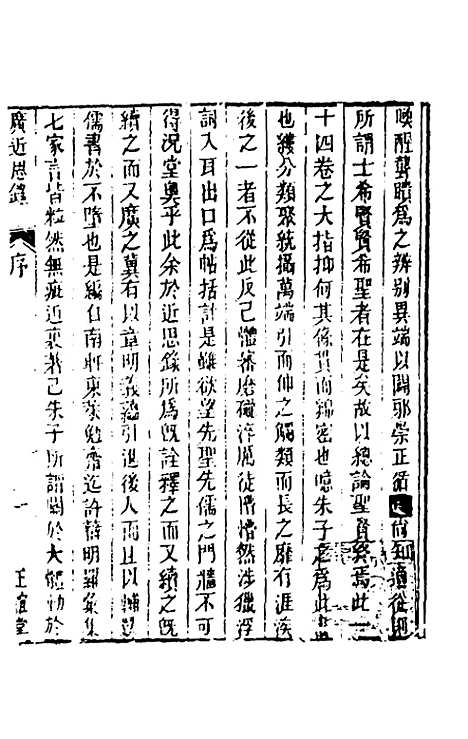 喚醒聾聵爲之辨别異端以閑邪崇正循 尚知適從則
所謂士希賢賢希聖者在是矣故以總論聖賢終焉此
十四卷之大指抑何其條貫而綿密也噫朱子之爲此
也縷分類聚統攝萬端引而伸之觸類而長之靡有涯涘
後之一者不從此反己體察磨礲淬厲徒懵懵然涉獵浮
詞入耳出口爲帖括計是雖欲望先聖先儒之門牆不可
得况堂奥乎此余於近思錄所爲既詮釋之而又續之既
續之而又廣之冀有以章明義蘊引進後人而且以輔
儒書於不墮也是編自南軒東萊勉齋迄許薛胡羅彙集
七家言皆粒然無疵近裏著己朱子所謂關於大體切於
廣近思錄
序
一
正誼堂